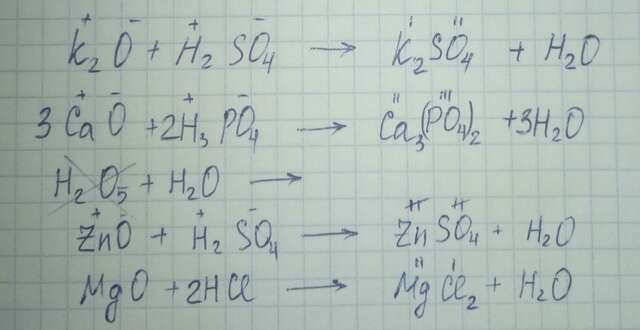 K₂O + H₂SO₄ → K₂SO₄ + H₂O
3CaO + 2H₃PO₄ → Ca₃(PO₄)₂ + 3H₂O
H₂O₅ + H₂O →
ZnO + H₂SO₄ → ZnSO₄ + H₂O
MgO + 2HCl → MgCl₂ + H₂O